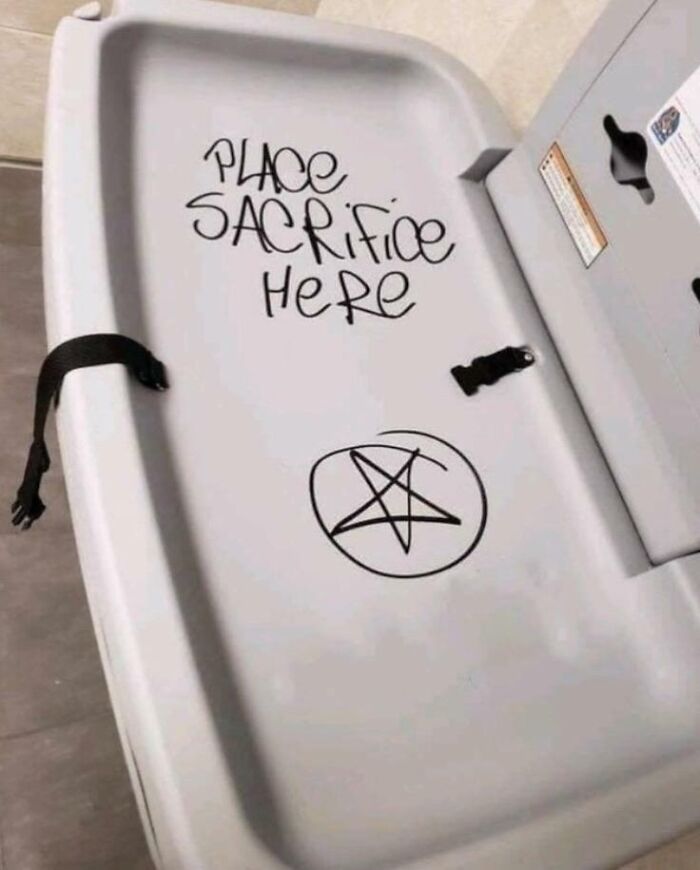 PLACe
SACRiFice
HeRe